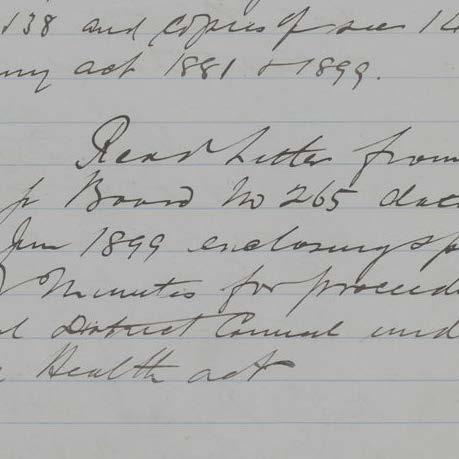 138 and copies of sec 14
ny act 1881 & 1899.
Read Letter from
Board No 265 dat
Jun 1899 enclosing sp
Minutes for proceed
District Council und
Health act